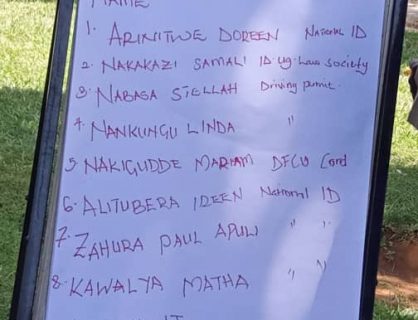 NAME
1. ARINITWE DOREEN National ID
2. NAKAKAZI SAMALI ID Ug. Law society
3. NABAGA STELLAH Driving permit
4. NANKUNGU LINDA "
5. NAKIGUDDE MARIAM DFCU Card
6. ALITUBERA IDEEN National ID
7. ZAHURA PAUL APULI " "
8. KAWALYA MATHA " "